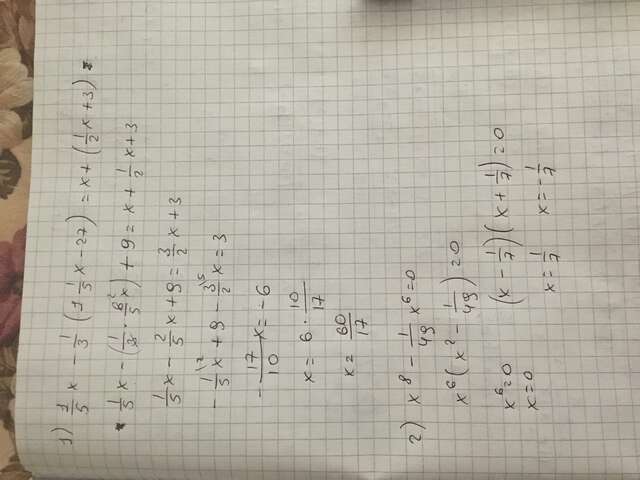 1) 1/5 x - 1/3 (1 1/5 x - 27) = x + (1/2 x + 3)
1/5 x - (1/3 · 6²/5 x) + 9 = x + 1/2 x + 3
1/5 x - 2/5 x + 9 = 3/2 x + 3
- 1/5 x + 9 - 3/2 x = 3
- 17/10 x = -6
x = 6 · 10/17
x = 60/17
2) x⁸ - 1/49 x⁶ = 0
x⁶ (x² - 1/49) = 0
x⁶ = 0 (x - 1/7)(x + 1/7) = 0
x = 0 x = 1/7 x = - 1/7